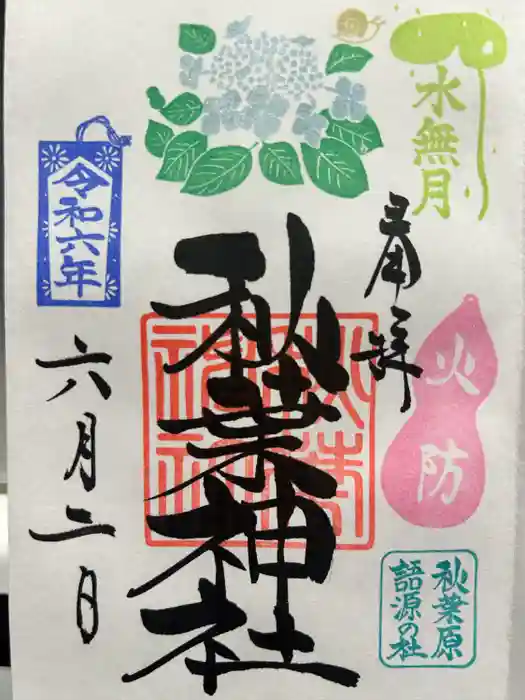 水無月
奉拝
火防
秋葉原
語源の社
秋葉神社
秋葉神社
令和六年
六月二日